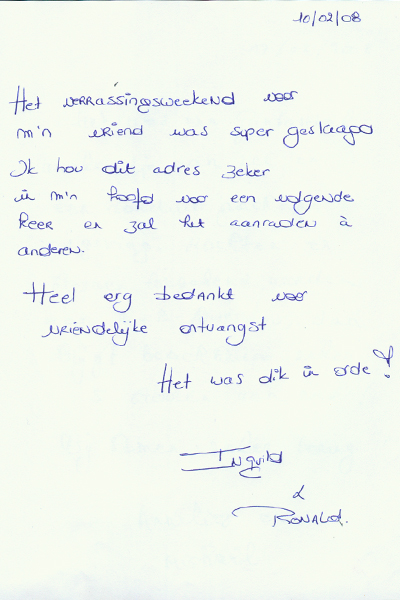 10/02/08
Het verrassingsweekend voor
m'n vriend was super geslaagd
Ik hou dit adres zeker
in m'n hoofd voor een volgende
keer en zal het aanraden à
anderen.
Heel erg bedankt voor
vriendelijke ontvangst
Het was dik in orde!
Ingvild
&
Ronald.